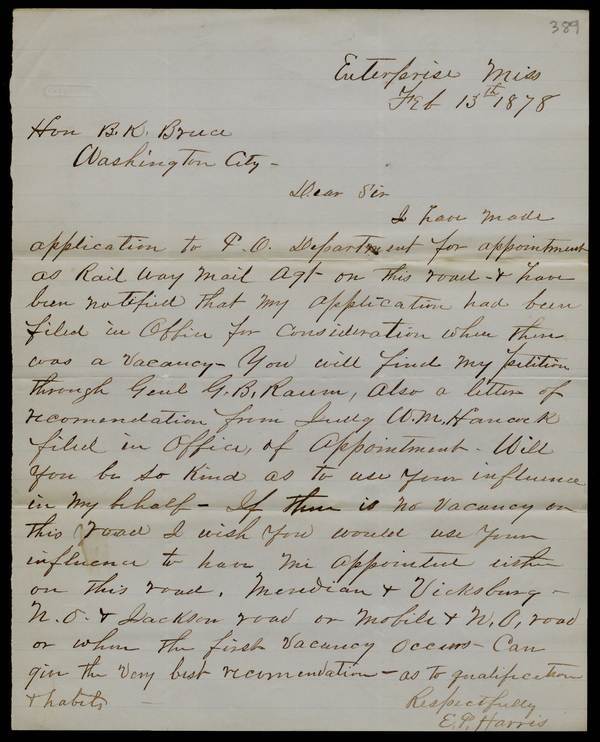 389
Enterprise Miss
Feb 13th 1878
Hon B.K. Bruce
Washington City -
Dear Sir
I have made
application to P.O. Department for appointment
as Rail Way Mail Agt on this road - & have
been notified that my application had been
filed in Office for consideration when there
was a vacancy - You will find my petition
through Genl G.B. Raum, Also a letter of
recomendation from Judg W.M. Hancock
filed in Office, of Appointment - Will
You be so kind as to use your influence
in my behalf - If there is no vacancy on
this road I wish You would use Your
influence to have me appointed eith
on this road, Meridian & Vicksburg -
N.O. & Jackson road or Mobile & N.O. road
or when the first vacancy occurs - Can
give the very best recomendation - as to qualification
& habits
Respectfully
E.P. Harris